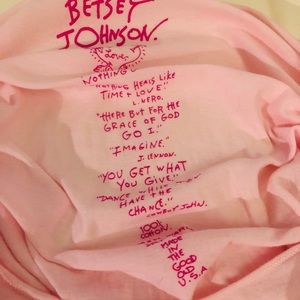 BETSEY
JOHNSON.
Love,
NOTHING
"NOTHING HEALS LIKE
TIME + LOVE."
L. NERO.
"THERE BUT FOR THE
GRACE OF GOD
GO I."
"IMAGINE."
J. LENNON.
"YOU GET WHAT
YOU GIVE."
"DANCE WHILE
HAVE THE
CHANCE."
JOHN.
100%
COTTON.
MADE
IN THE
GOOD
OLD
U.S.A